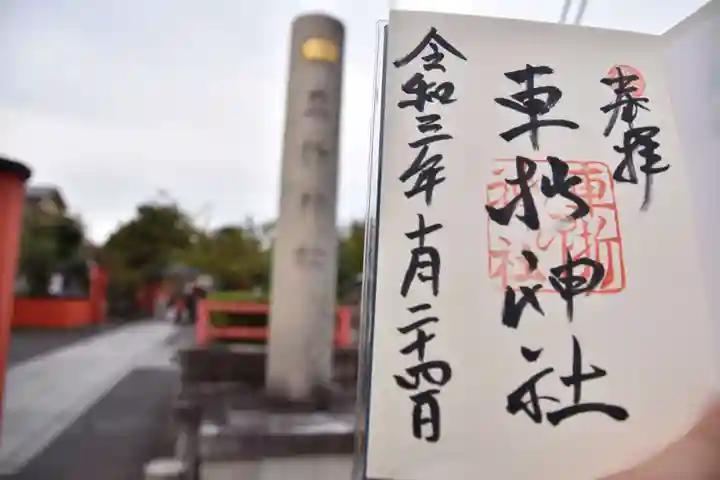 奉拝
車折神社
令和三年十月二十四日
車折
神社